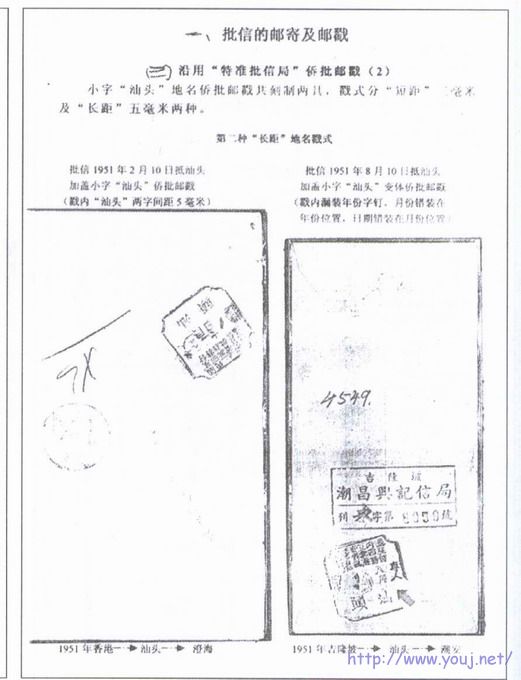 一、批信的邮寄及邮戳
(三) 沿用“特准批信局”侨批邮戳（2）
小字“汕头”地名侨批邮戳共刻制两具，戳式分“短距”二毫米
及“长距”五毫米两种。
第二种“长距”地名戳式
批信1951年2月10日抵汕头
加盖小字“汕头”侨批邮戳
（戳内“汕头”两字间距5毫米）
批信1951年8月10日抵汕头
加盖小字“汕头”变体侨批邮戳
（戳内漏装年份字钉，月份错装在
年份位置，日期错装在月份位置）
頭 汕
4549.
吉隆坡
潮昌興記信局
列 字第 9050 號
頭 汕
1951年香港→汕头→澄海
1951年吉隆坡→汕头→潮安
http://www.youj.net/